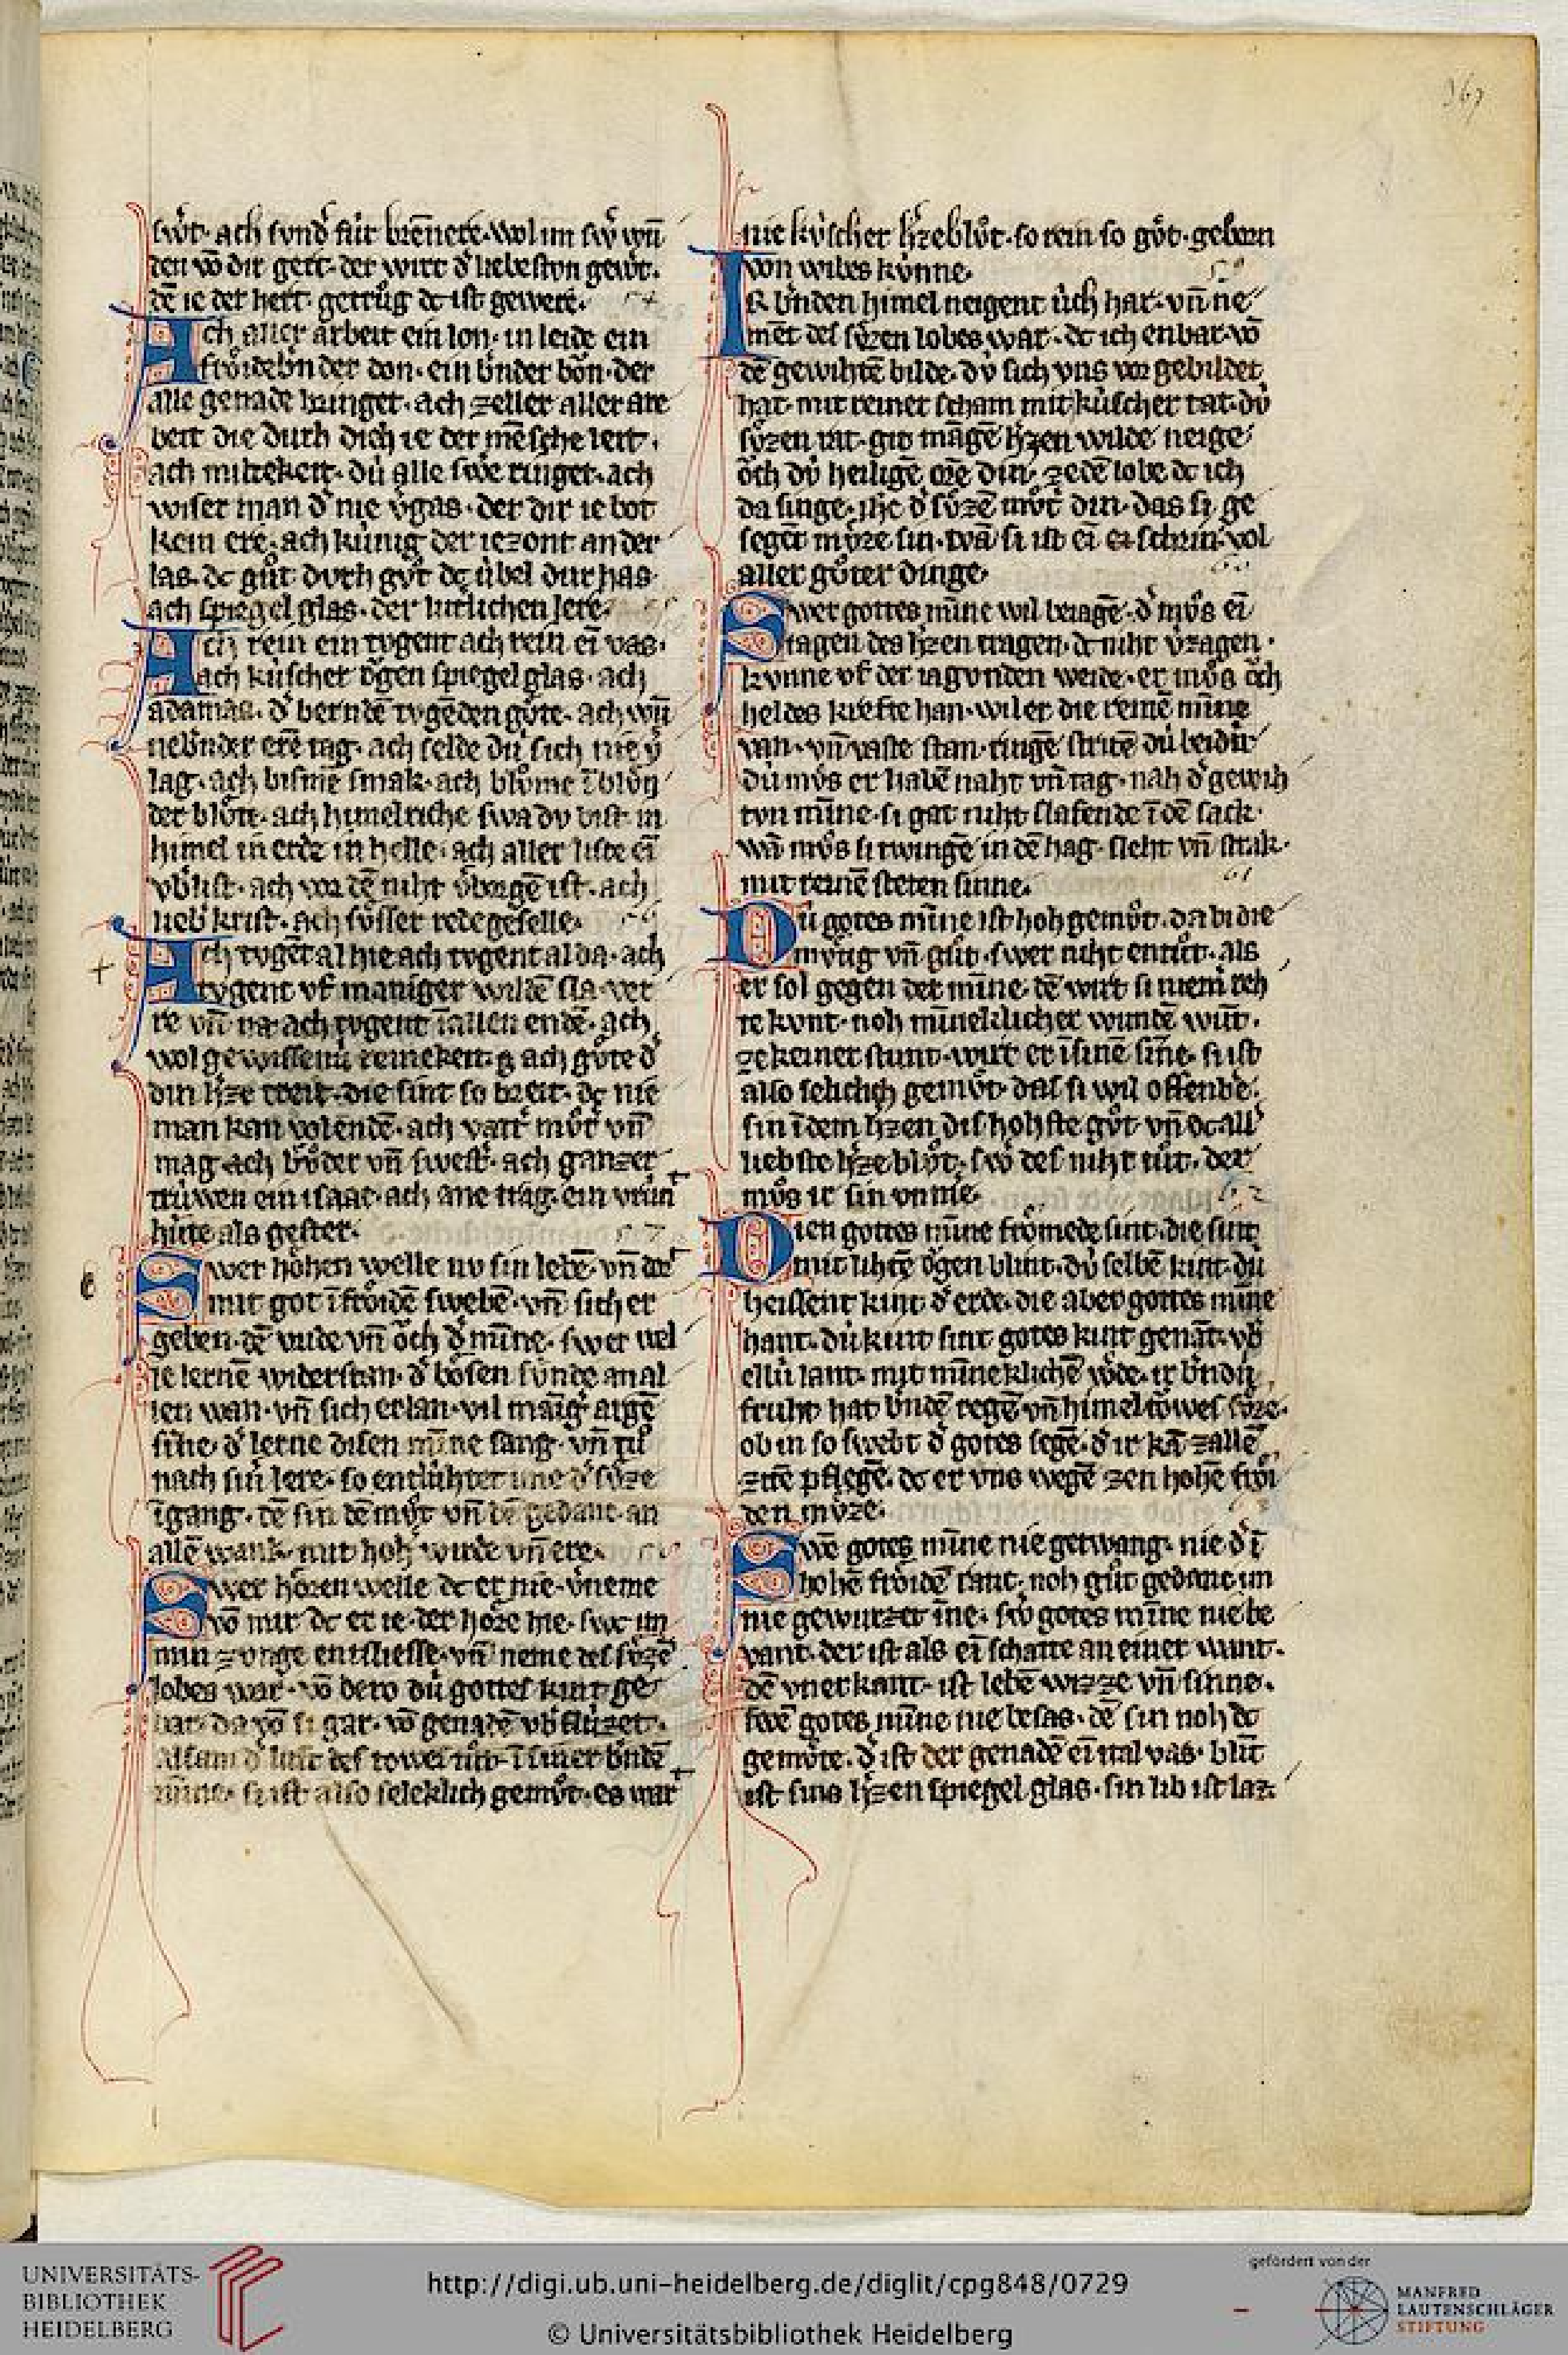 367
swˀt· ach sund˜ für brēnete· wol im sw˜ wū
den vō dir gert· der wirt d˜ liebe ston gew˜t·
dē ie der hert· getrůg dc ist gewere·
Ach aller arbeit ein lon· in leide ein
fröidebˀnder don· ein bˀnder bōn· der
alle genade bringet· ach zeller aller are
beit die durh dich ie der mēsche leit·
ach miltekeit· dú alle swˀe ringet· ach
wiser man d˜ nie v˜gas· der dir ie bot
kein ere· ach kúnig der iezont an der
las· dc gůt durh gůt dc úbel dur has·
ach spiegel glas· der kúrlichen lere·
Ach rein ein tvgent ach rein eī vas·
ach kúscher ögen spiegel glas· ach
adamas· d˜ berndē tvgēden göte· ach wū
nebˀnder erē tag· ach selde dú sich nie v˜
lag· ach bismē smak· ach blůme ī blůn
der blůtt· ach himelriche swa dv bist in
himel in erde in helle· ach aller liste eī
vb˜list· ach vor dē niht v˜borgē ist· ach
lieb˜ krist· ach sösser redegeselle·
Ach tvgēt al hie ach tvgent al da· ach
tvgent vf maniger wildē sla· ver
re vn̄ na· ach tvgent ī allen endē· ach
wol gewissenú reinekeit· ach göte d˜
din hˀze treit· die sint so breit· dc nie
man kan volendē· ach vatt˜ můt˜ vn̄
mag· ach brůder vn̄ swest˜· ach ganzer
trúwen ein isaac· ach ane trag· ein vrún
húte als gester·
Swer höhen welle nv sin lebē· vn̄ der
mit got ī fröidē swebē· vn̄ sich er
geben· dē vride vn̄ öch d˜ mīne· swer wel
le lernē widerstan· d˜ bösen súnde an al
len wan· vn̄ sich erlan· vil manig˜ argē
sīne· d˜ lerne disen mīne sang· vn̄ tů
nach sin˜ lere· so entlúhtet ime d˜ söze
īgang· dē sin dē můt vn̄ dē gedanc· an
allē wank· mit hoh˜ wirde vn̄ ere·
Swer hören welle dc er nie· v˜neme
vō mir dc er ie· der höre hie· swc im
min zvnge entsliesse· vn̄ neme des sözē
lobes war· vō dero dú gottes kint ge
bar· da vō si gar· vō genadē vb˜flúzet·
alsam d˜ luft des towes tůt· ī siner bˀndē
mīne· si ist also seleklich gemůt· es wart
nie kúscher hˀzeblůt· so rein so gůt· geborn
von wibes kúnne·
Ir bˀnden himel neigent úch har· vn̄ ne
met des sözen lobes war· dc ich enbar· vō
dē gewihtē bilde· dú sich vns vor gebildet
hat· mit reiner scham mit kúscher tat· dú
sözen rat· git mangē hˀzen wilde· neige
öch dú heiligē ore din· zedē lobe dc ich
da singe· ihc d˜ sözē můt˜ din· das si ge
segēt můze sin· wā si ist eī schrin· vol
aller göter dinge·
Swer gottes mīne wil beiagē· d˜ můs eī
iagen des hˀzen tragen· dc niht v˜zagen·
kvnne vf der iagvnden weide· er můs öch
heldes krefte han· wil er die reinē mīne
van· vn̄ vaste stan· ringē stritē dú beidú·
dú můs er habē naht vn̄ tag· nah d˜ gewih
ton mīne· si gat niht slafende ī dē sack·
wā můs si twingē in dē hag· sleht vn̄ strak·
mit reinē steten sinne·
Dú gotes mīne ist hoh gemůt· da bi die
můtig vn̄ gůt· swer niht entůt· als
er sol gegen der mīne· dē wirt si niem˜ reh
te kvnt· noh mīneklicher wundē wūt·
ze keiner stunt· wirt er ī sinē sīne· si ist
also selich gemůt· das si wil offenbe·
sin ī dem hˀzen dis hohste gůt· vn̄ dc all˜
liebste hˀzeblůt· swˀ des niht tůt· der
můs ir sin vnmē·
Dien gottes mīne frömede sint· die sint
mit lihtē ögen blint· dú selbē kint· dú
heissent kint d˜ erde· die aber gottes mīne
hant· dú kint sint gotes kint genāt· vb˜
ellú lant· mit mīneklichē wˀde· ir bˀndú
fruht hat bˀndē regē vn̄ himeltöwes söze·
ob in so swebt d˜ gotes segē· d˜ ir kā zallē
zitē pflegē· dc er vns wegē zen hohē fröi
den můze·
Swē gotes mīne nie getwang· nie d˜ ī
hohē fröidē ranc· noh gůt gedanc im
nie gewurzet īne· swˀ gotes mīne nie be
vant· der ist als eī schatte an einer want·
dē vnerkant· ist lebē wizze vn̄ sinne·
swē gotes mīne nie besas· dē sin noh dc
gemöte· d˜ ist der genadē eī ital vas· blīt
ist sins hˀzen spiegel glas· sin lib ist laz·
UNIVERSITÄTS-
BIBLIOTHEK
HEIDELBERG
http://digi.ub.uni-heidelberg.de/diglit/cpg848/0729
© Universitätsbibliothek Heidelberg
gefördert von der
MANFRED
LAUTENSCHLÄGER
STIFTUNG